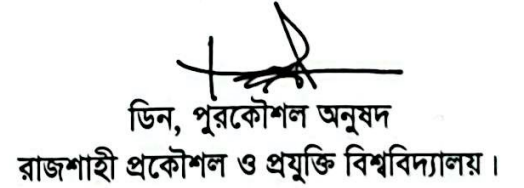 ডিন, পুরকৌশল অনুষদ
রাজশাহী প্রকৌশল ও প্রযুক্তি বিশ্ববিদ্যালয়।